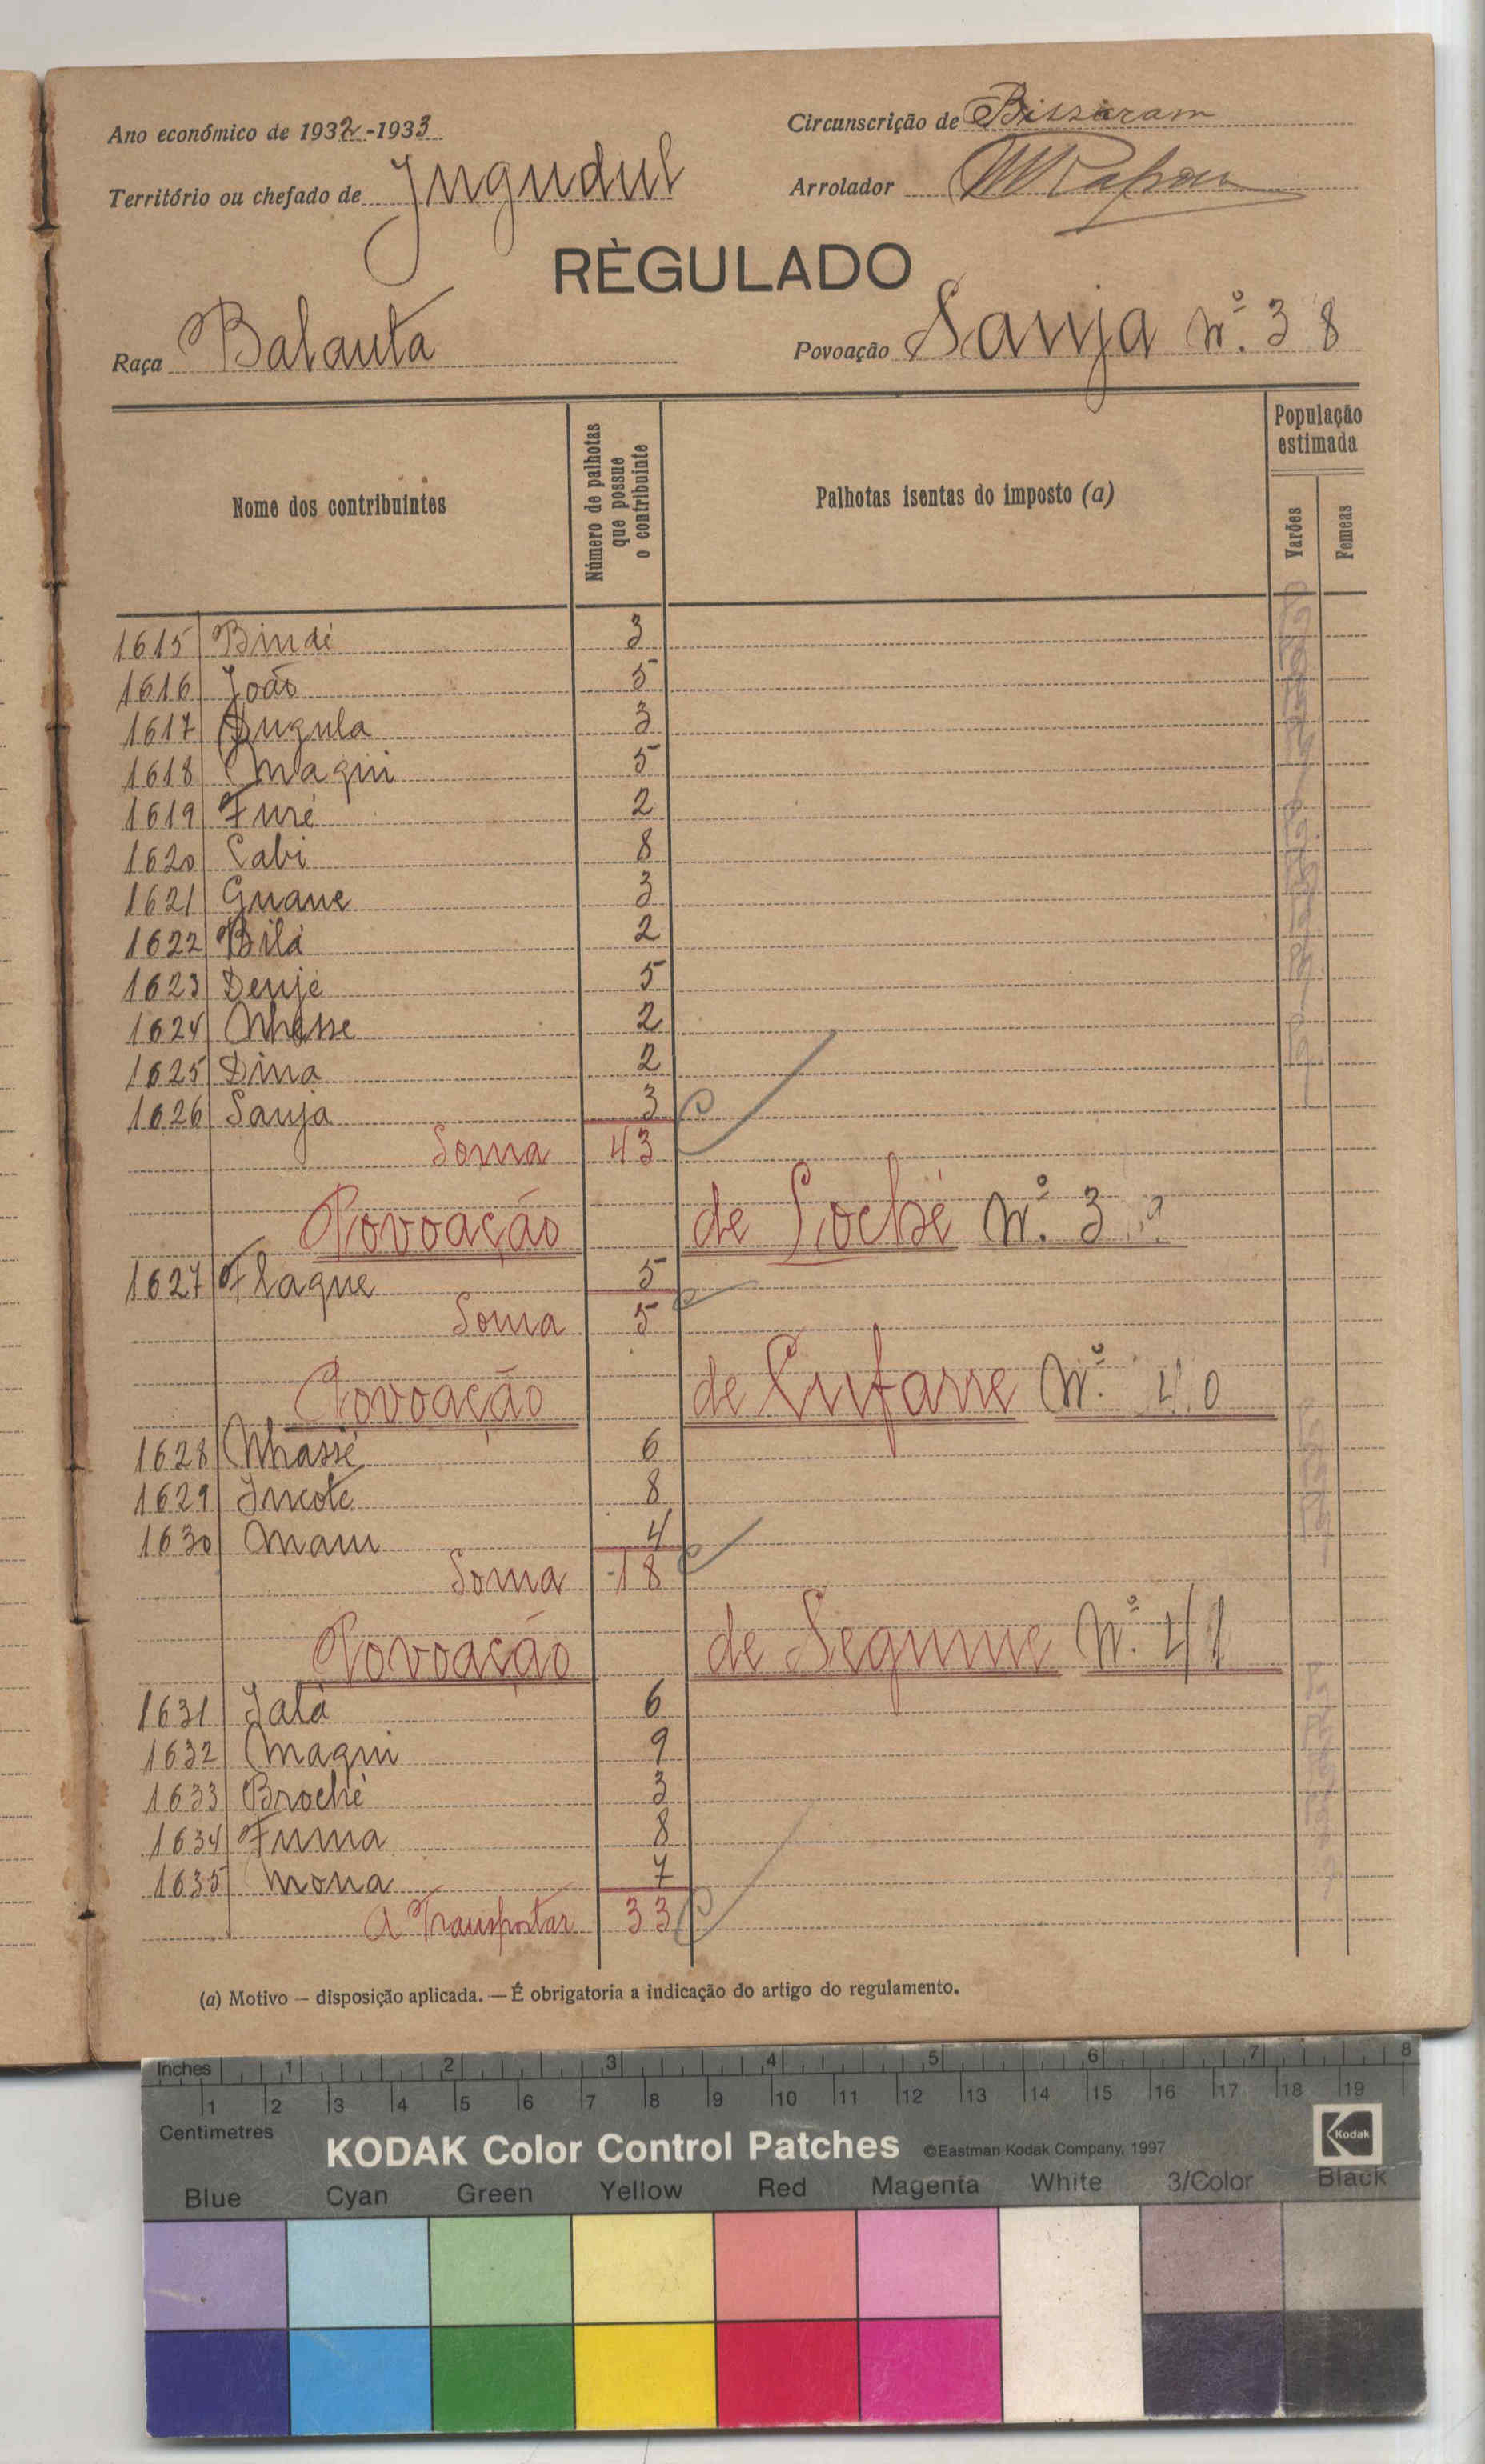 Ano económico de 1932-1933
Circunscrição de Bissoram
Território ou chefado de Jngudul
Arrolador
RÈGULADO
Raça Balanta
Povoação Sanja Nº. 38
Nome dos contribuintes
Número de palhotas que possue o contribuinte
Palhotas isentas do imposto (a)
População estimada
Varões
Femeas
1615 Bindé 3
1616 João 5
1617 Ungula 3
1618 Maqui 5
1619 Furé 2
1620 Cabi 8
1621 Guane 3
1622 Bilá 2
1623 Denjé 5
1624 Nhasse 2
1625 Dina 2
1626 Sanja 3
Soma 43
Povoação de Loché Nº. 3
1627 Flaque 5
Soma 5
Povoação de Cufarre Nº. 40
1628 Nhassé 6
1629 Jncote 8
1630 Mam 4
Soma 18
Povoação de Segunne Nº. 41
1631 Jalá 6
1632 Maqui 9
1633 Broché 3
1634 Fuma 8
1635 Mona 7
A Transportar 33
(a) Motivo — disposição aplicada. — É obrigatoria a indicação do artigo do regulamento.
Inches 1 2 3 4 5 6 7 8
1 2 3 4 5 6 7 8 9 10 11 12 13 14 15 16 17 18 19
Centimetres
KODAK Color Control Patches ©Eastman Kodak Company, 1997 Kodak
Blue Cyan Green Yellow Red Magenta White 3/Color Black